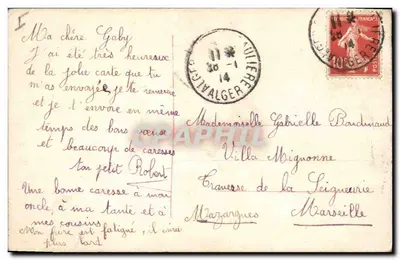 I
Ma chère Gaby
J'ai été très heureux
de la jolie carte que tu
m'as envoyée je te remercie
et je t'envoie en même
temps des bons vœux
et beaucoup de caresses
ton petit Robert
Une bonne caresse à mon
oncle, à ma tante et à
mes cousins
Mon père est fatigué, il
plus tard
11 *
30 -1
14
ALGER
Mademoiselle Gabrielle
Villa Mignonne
Traverse de la Seigneurie
Mazargues Marseille